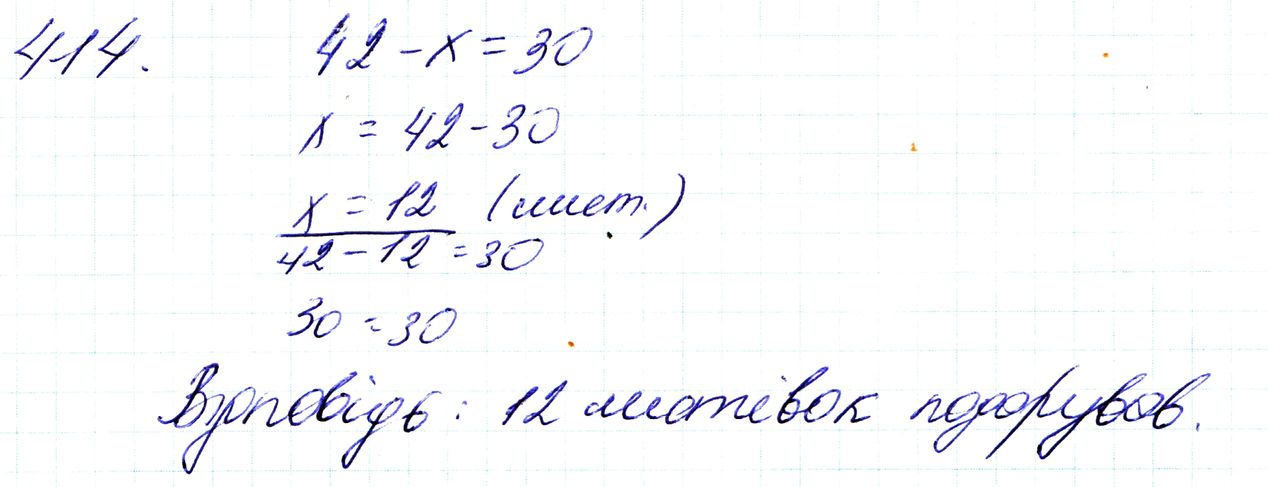 414. 42 - x = 30
x = 42 - 30
x = 12 (лист.)
42 - 12 = 30
30 = 30
Відповідь: 12 листівок подарував.